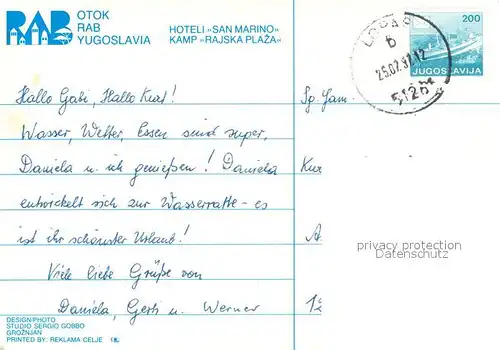 RAB
OTOK
RAB
YUGOSLAVIA
HOTELI »SAN MARINO«
KAMP »RAJSKA PLAŽA«
LOPAR
b
25.02.87.12
51281
200
JUGOSLAVIJA
Hallo Gabi, Hallo Kurt!
Wasser, Wetter, Essen sind super,
Daniela u. ich genießen! Daniela
entwickelt sich zur Wasserratte - es
ist ihr schönster Urlaub!
Viele liebe Grüße von
Daniela, Gerti u. Werner
Sp. Fam.
Kur
A
12
privacy protection
Datenschutz
DESIGN/PHOTO
STUDIO SERGIO GOBBO
GROŽNJAN
PRINTED BY: REKLAMA CELJE